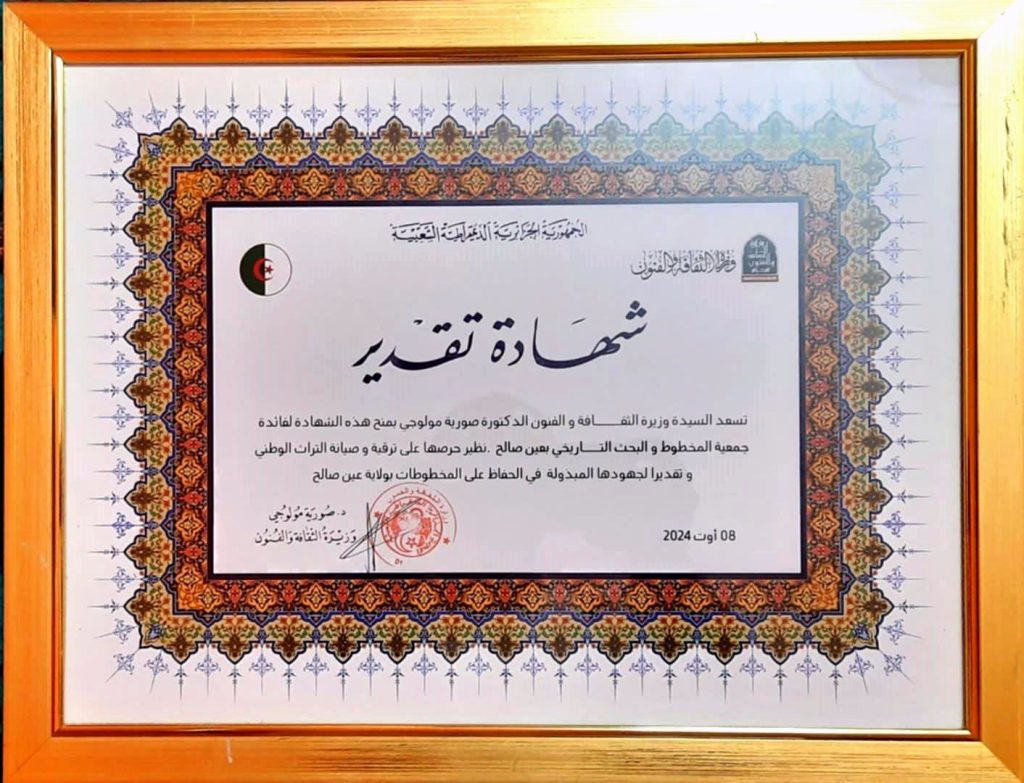 الجمهورية الجزائرية الديمقراطية الشعبية
وزارة الثقافة والفنون
وزارة
الثقافة
والفنون
شهادة تقدير
تسعد السيدة وزيرة الثقـــــــافة و الفنون الدكتورة صورية مولوجي بمنح هذه الشهادة لفائدة
جمعية المخطوط و البحث التـــاريخي بعين صالح .نظير حرصها على ترقية و صيانة التراث الوطني
و تقديرا لجهودها المبذولة في الحفاظ على المخطوطات بولاية عين صالح
08 أوت 2024
د. صُورية مُولوجي
وَزيْرَةُ الثّقافَة وَالفُنُون